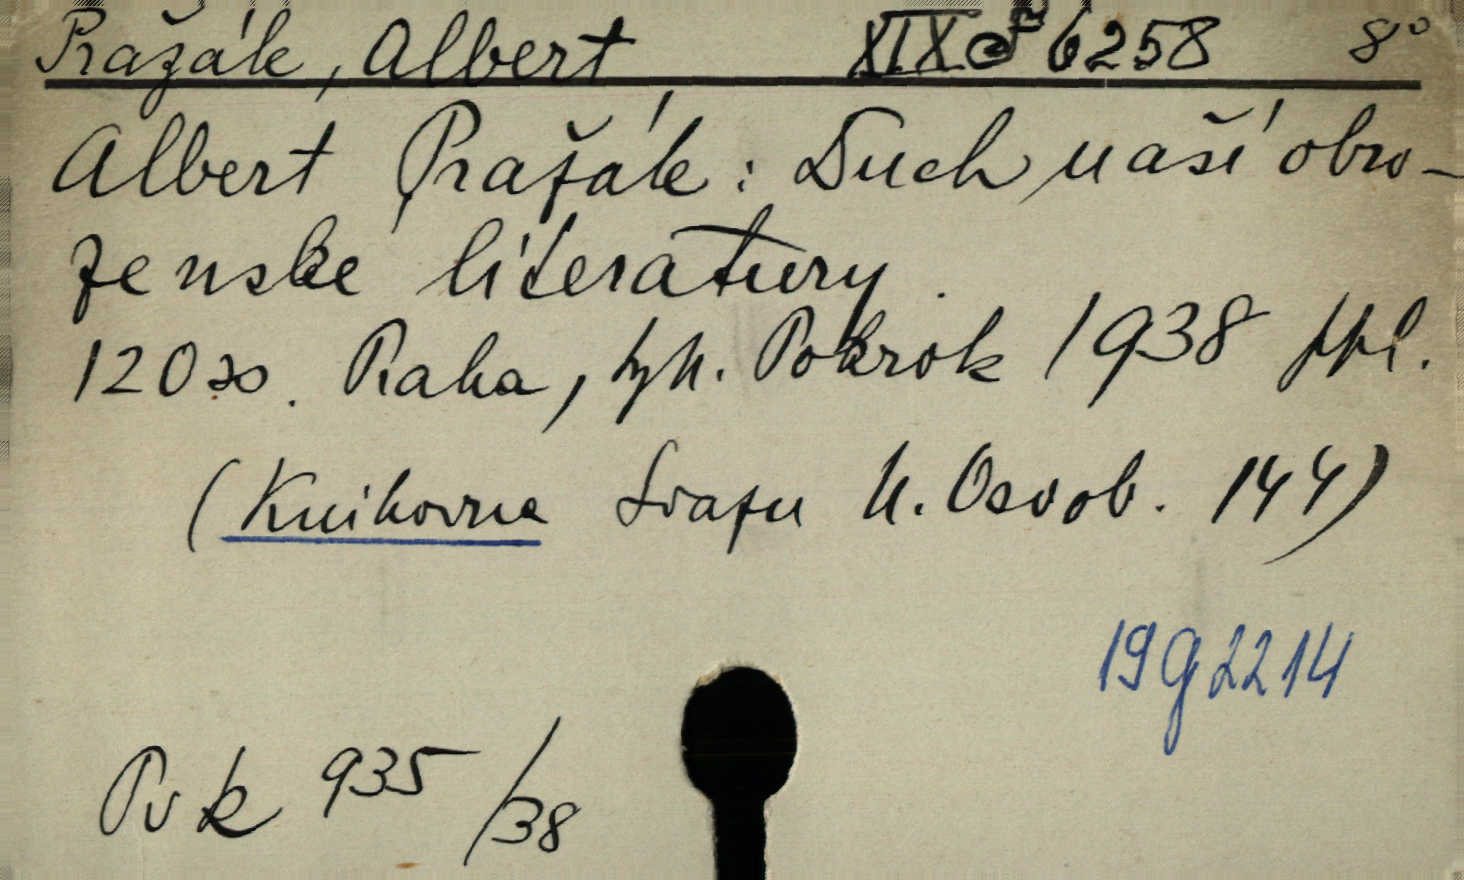 Pražák, Albert XIX F 6258 8°
Albert Pražák: Duch naší obro-
zenské literatury.
120 s. Praha, typ. Pokrok 1938 ppl.
(Knihovna Svazu N. Osvob. 144)
19 g 22 14
Pv k 935/38